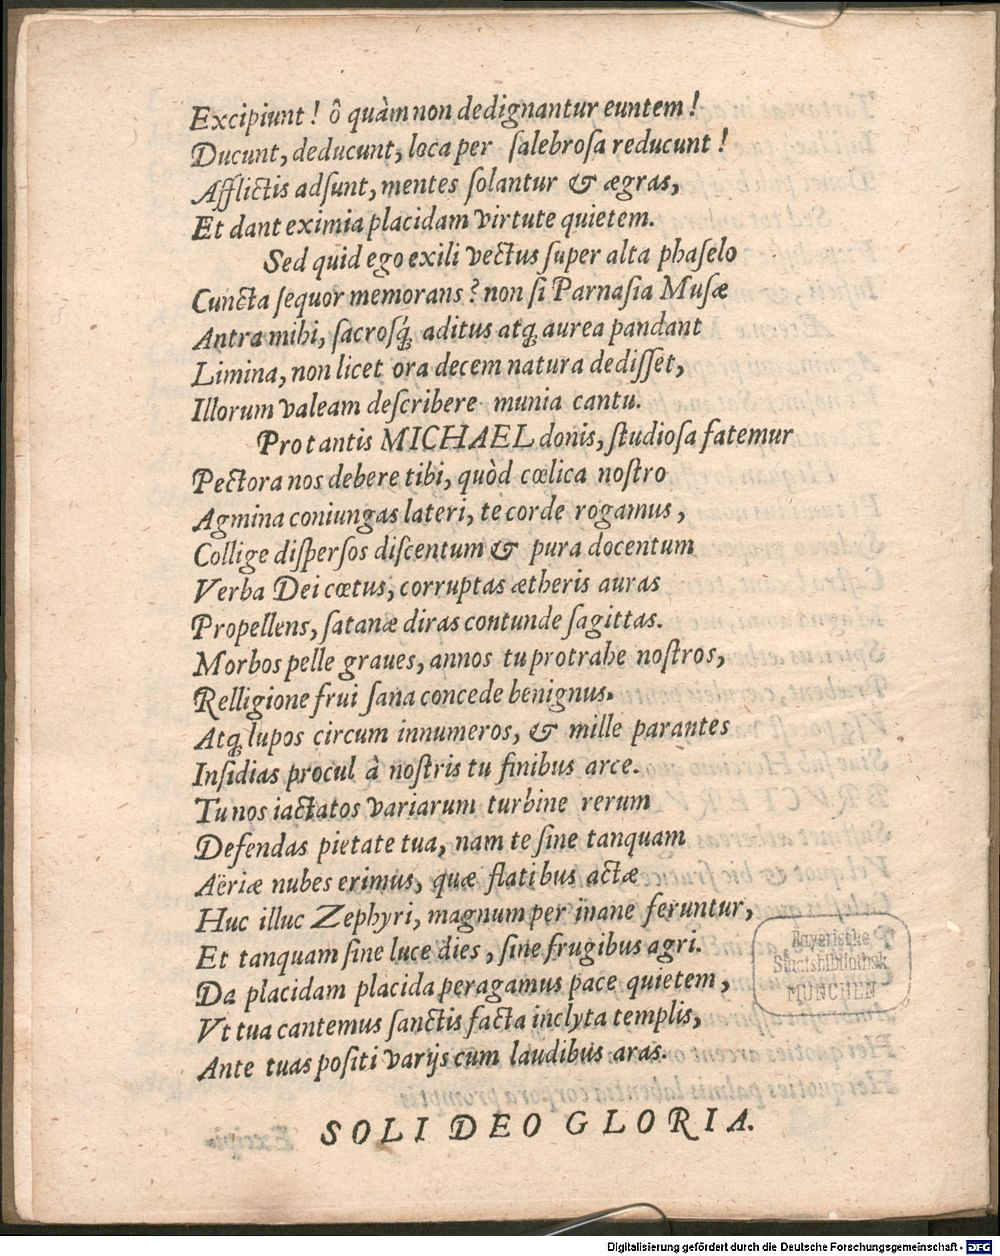 Excipiunt! ô quàm non dedignantur euntem!
Ducunt, deducunt, loca per ſalebroſa reducunt!
Afflictis adſunt, mentes ſolantur & ægras,
Et dant eximia placidam virtute quietem.
Sed quid ego exili vectus ſuper alta phaſelo
Cuncta ſequor memorans? non ſi Parnaſia Muſæ
Antra mihi, ſacroſq́; aditus atq; aurea pandant
Limina, non licet ora decem natura dediſſet,
Illorum valeam deſcribere munia cantu.
Pro tantis MICHAEL donis, ſtudioſa fatemur
Pectora nos debere tibi, quòd cœlica noſtro
Agmina coniungas lateri, te corde rogamus,
Collige diſperſos diſcentum & pura docentum
Verba Dei cœtus, corruptas ætheris auras
Propellens, ſatanæ diras contunde ſagittas.
Morbos pelle graues, annos tu protrahe noſtros,
Relligione frui ſana concede benignus.
Atq; lupos circum innumeros, & mille parantes
Inſidias procul à noſtris tu finibus arce.
Tu nos iactatos variarum turbine rerum
Defendas pietate tua, nam te ſine tanquam
Aëriæ nubes erimus, quæ flatibus actæ
Huc illuc Zephyri, magnum per inane feruntur,
Et tanquam ſine luce dies, ſine frugibus agri.
Da placidam placida peragamus pace quietem,
Vt tua cantemus ſanctis facta inclyta templis,
Ante tuas poſiti varijs cum laudibus aras.
SOLI DEO GLORIA.
Bayerische
Staatsbibliothek
MÜNCHEN
Digitalisierung gefördert durch die Deutsche Forschungsgemeinschaft - DFG